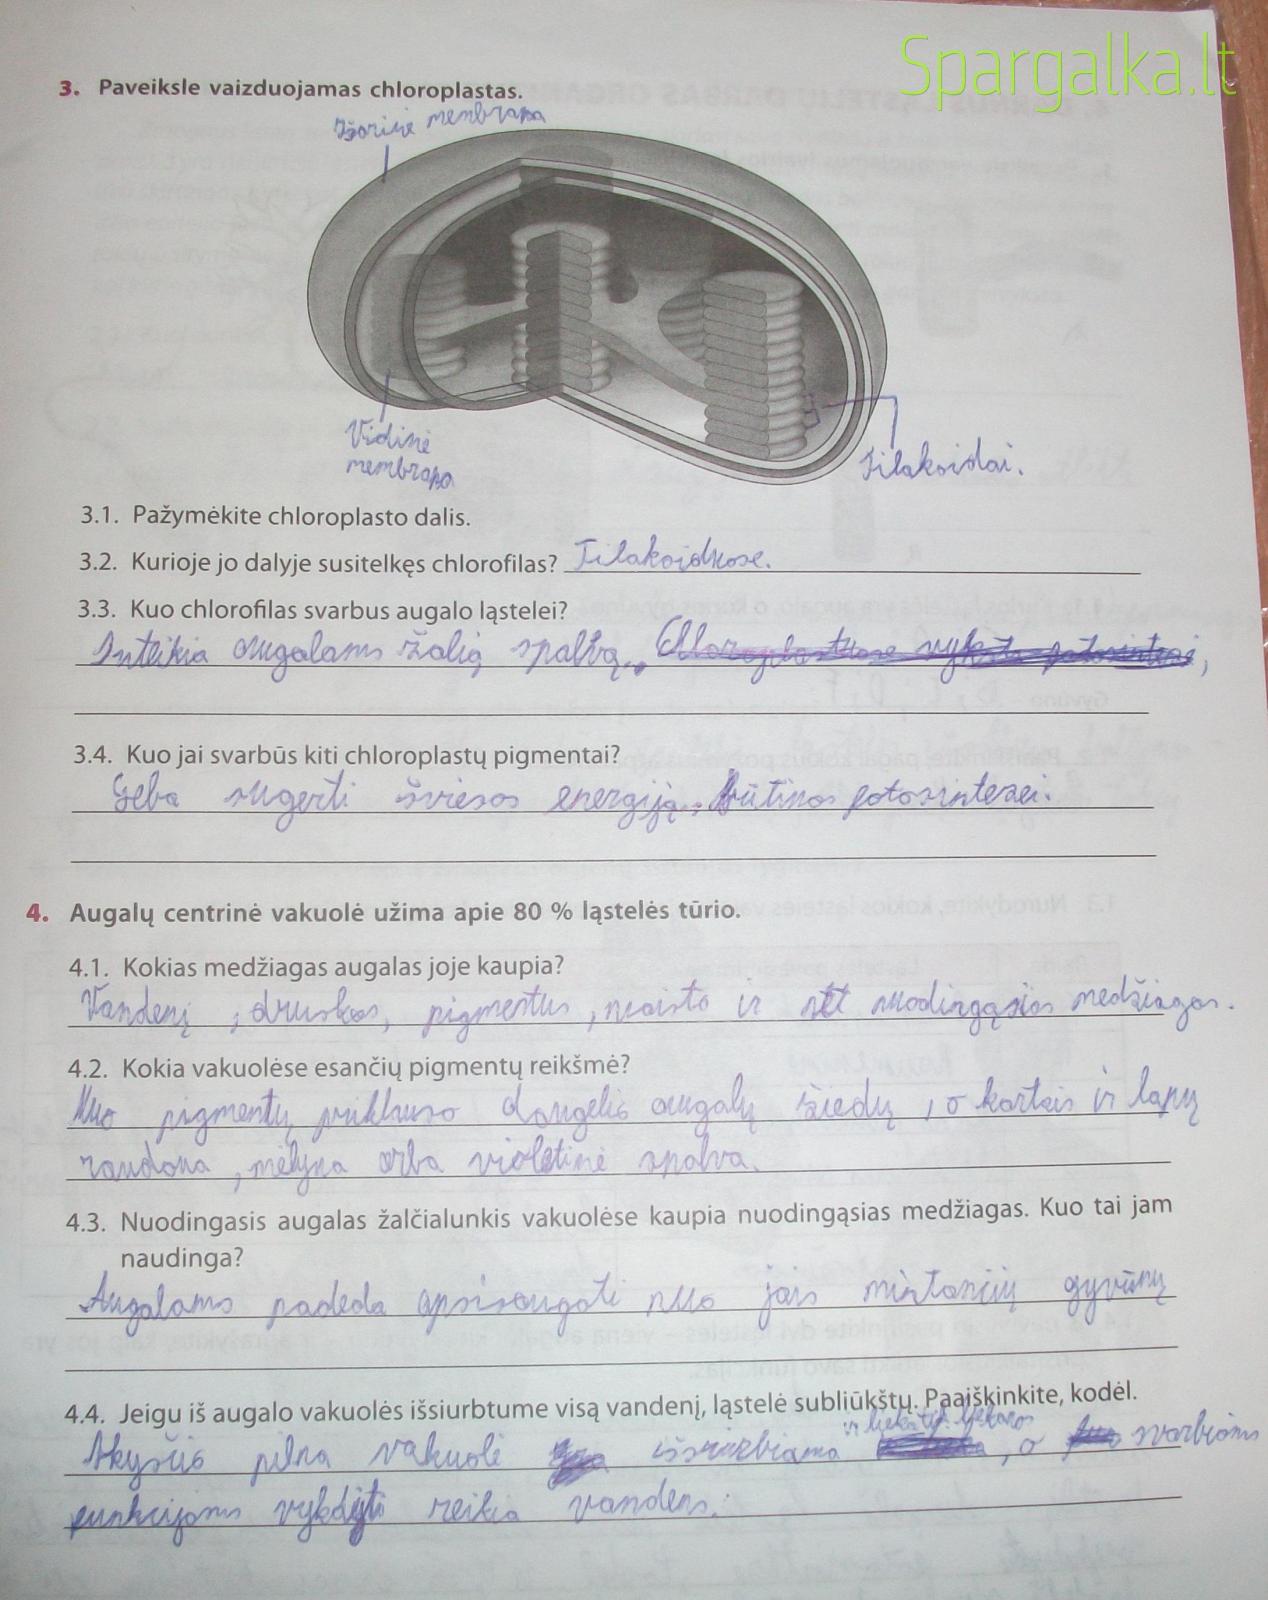 Spargalka.lt
3. Paveiksle vaizduojamas chloroplastas.
Išorinė membrana
Vidinė
membrana
Tilakoidai.
3.1. Pažymėkite chloroplasto dalis.
3.2. Kurioje jo dalyje susitelkęs chlorofilas? Tilakoiduose.
3.3. Kuo chlorofilas svarbus augalo ląstelei?
Suteikia augalams žalią spalvą. Chloroplastuose vyksta fotosintezė,
3.4. Kuo jai svarbūs kiti chloroplastų pigmentai?
Geba sugerti šviesos energiją, būtinos fotosintezei.
4. Augalų centrinė vakuolė užima apie 80 % ląstelės tūrio.
4.1. Kokias medžiagas augalas joje kaupia?
Vandenį, druskas, pigmentus, maisto ir net nuodingąsias medžiagas.
4.2. Kokia vakuolėse esančių pigmentų reikšmė?
Nuo pigmentų priklauso daugelio augalų žiedų, o kartais ir lapų
raudona, mėlyna arba violetinė spalva.
4.3. Nuodingasis augalas žalčialunkis vakuolėse kaupia nuodingąsias medžiagas. Kuo tai jam
naudinga?
Augalams padeda apsisaugoti nuo jais mintančių gyvūnų
4.4. Jeigu iš augalo vakuolės išsiurbtume visą vandenį, ląstelė subliūkštų. Paaiškinkite, kodėl.
Skysčio pilna vakuolė išsiurbiama ir lieka, o svarbioms
funkcijoms vykdyti reikia vandens.